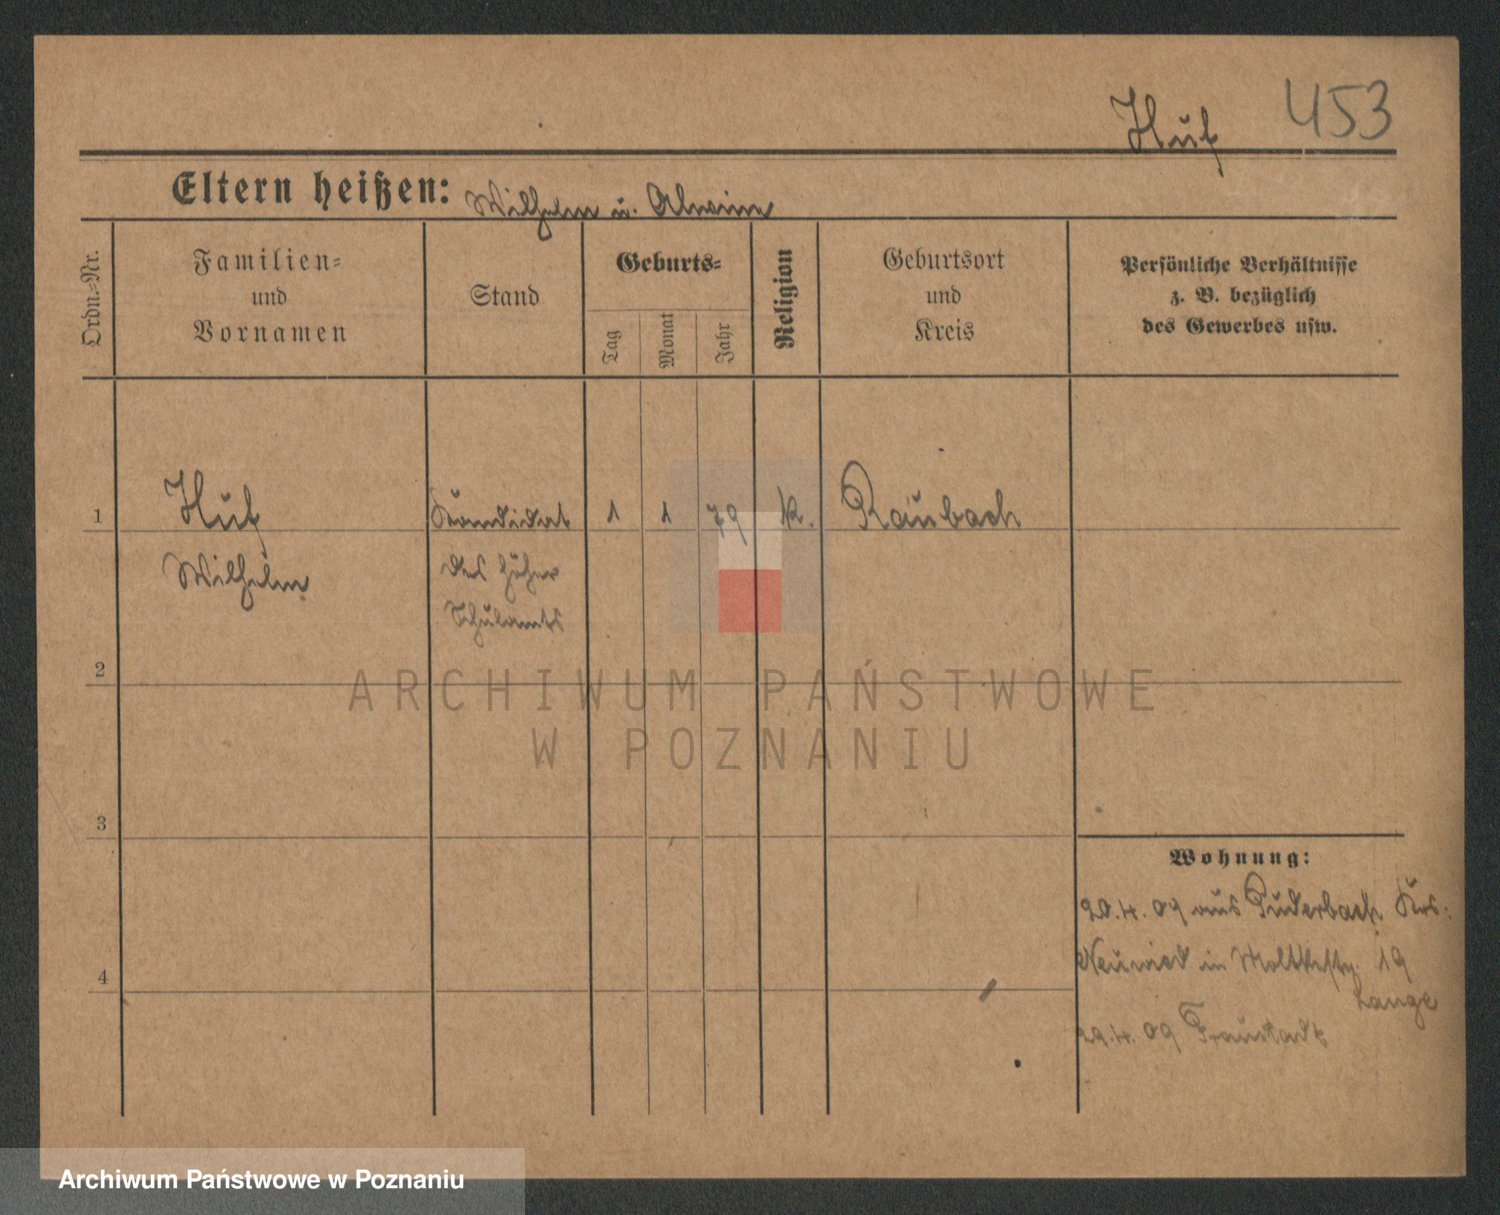 Huf 453
Eltern heißen: Wilhelm u. Alwine
Ordn.-Nr.
Familien-
und
Vornamen
Stand
Geburts-
Tag
Monat
Jahr
Religion
Geburtsort
und
Kreis
Persönliche Verhältnisse
z. B. bezüglich
des Gewerbes usw.
1 Huf Kandidat 1 1 79 K. Raubach
Wilhelm des höher
Schulamts
2
ARCHIWUM PAŃSTWOWE
W POZNANIU
3
Wohnung:
20.4.09 aus Puderbach Krs.
Neuwied in Moltkestr. 19
Lange
4
29.4.09 Fraustadt
Archiwum Państwowe w Poznaniu